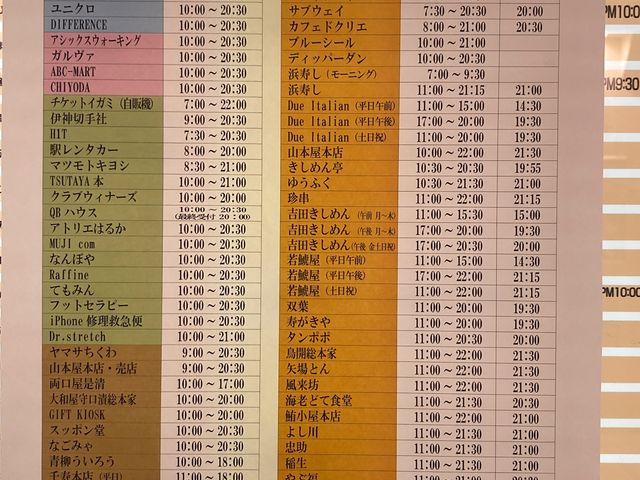 ユニクロ 10:00～20:30
DIFFERENCE 10:00～20:30
アシックスウォーキング 10:00～20:30
ガルヴァ 10:00～20:30
ABC-MART 10:00～20:30
CHIYODA 10:00～20:30
チケットイガミ（自販機） 7:00～22:00
伊神切手社 9:00～20:30
HIT 7:30～20:30
駅レンタカー 8:00～20:00
マツモトキヨシ 8:30～21:00
TSUTAYA 本 10:00～21:00
クラブウィナーズ 10:00～20:00
QBハウス 10:00～20:30
(最終受付 20:00)
アトリエはるか 10:00～20:30
MUJI com 10:00～20:30
なんぼや 10:00～20:30
Raffine 10:00～20:30
てもみん 10:00～20:30
フットセラピー 10:00～20:30
iPhone 修理救急便 10:00～20:30
Dr.stretch 10:00～21:00
ヤマサちくわ 9:00～20:30
山本屋本店・売店 9:00～20:30
両口屋是清 10:00～17:00
大和屋守口漬総本家 10:00～20:30
GIFT KIOSK 10:00～20:00
スッポン堂 10:00～20:30
なごみゃ 10:00～20:30
青柳ういろう 10:00～18:00
千寿本店（平日） 11:00～18:00
サブウェイ 7:30～20:30 20:00
カフェドクリエ 8:00～21:00 20:30
ブルーシール 10:00～21:00
ディッパーダン 10:00～20:30
浜寿し（モーニング） 7:00～9:30
浜寿し 11:00～21:15 21:00
Due Italian（平日午前） 11:00～15:00 14:30
Due Italian（平日午後） 17:00～20:00 19:30
Due Italian（土日祝） 11:00～20:00 19:30
山本屋本店 10:00～22:00 21:30
きしめん亭 10:30～20:30 19:55
ゆうふく 10:30～21:30 21:00
珍串 11:00～22:00 21:15
吉田きしめん（午前 月～木） 11:00～15:30 15:00
吉田きしめん（午後 月～木） 17:00～20:00 19:30
吉田きしめん（午後 金土日祝） 17:00～20:30 20:00
若鯱屋（平日午前） 11:00～15:00 14:30
若鯱屋（平日午後） 17:00～22:00 21:15
若鯱屋（土日祝） 11:00～22:00 21:15
双葉 11:00～20:00 19:30
寿がきや 11:00～20:00 19:30
タンポポ 11:00～20:30 20:00
鳥開総本家 11:00～22:00 21:30
矢場とん 11:00～22:00 21:30
風来坊 11:00～22:00 21:30
海老どて食堂 11:00～21:30 20:30
鮪小屋本店 11:00～22:00 21:30
よし川 11:00～21:30 21:00
忠助 11:00～21:30 21:00
稲生 11:00～21:30 21:00
やぶ福 11:00～21:30 20:30
PM10:0
PM9:30
PM10:00